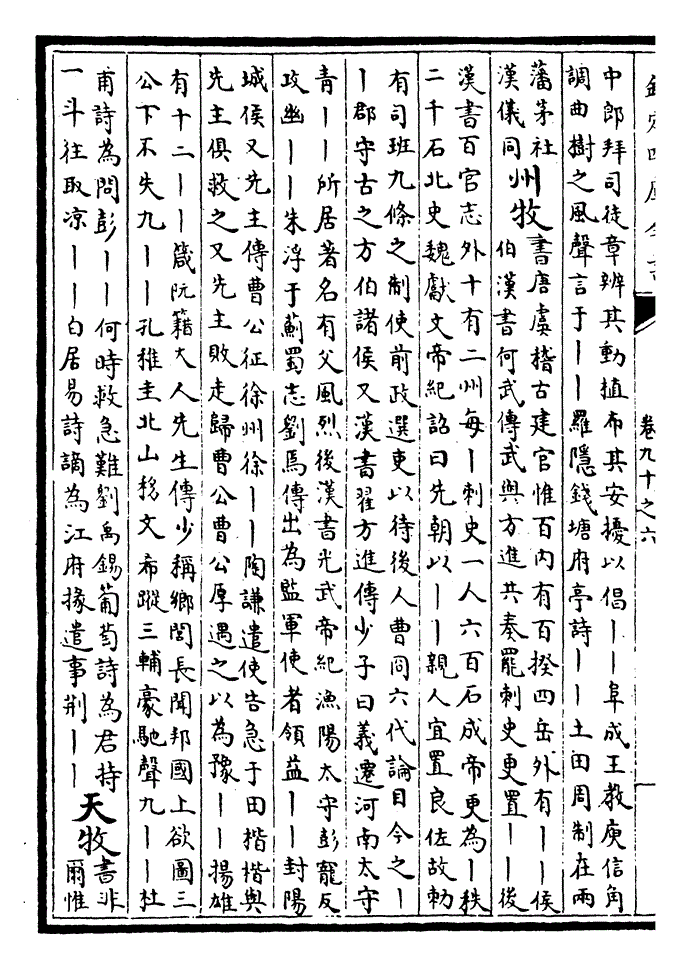 欽定四庫全書
卷九十之六
中郎拜司徒章辨其動植布其安擾以倡丨丨阜成王教庾信角
調曲樹之風聲言于丨丨羅隱錢塘府亭詩丨丨土田周制在兩
藩茅社
漢儀同
州牧
書唐虞稽古建官惟百内有百揆四岳外有丨丨侯
伯漢書何武傳武與方進共奏罷刺史更置丨丨後
漢書百官志外十有二州每丨刺史一人六百石成帝更為丨秩
二千石北史魏獻文帝紀詔曰先朝以丨丨親人宜置良佐故勅
有司班九條之制使前政選吏以待後人曹冏六代論目今之丨
丨郡守古之方伯諸侯又漢書翟方進傳少子曰義遷河南太守
青丨丨所居著名有父風烈後漢書光武帝紀漁陽太守彭寵反
攻幽丨丨朱浮于薊蜀志劉焉傳出為監軍使者領益丨丨封陽
城侯又先主傳曹公征徐州徐丨丨陶謙遣使告急于田楷楷與
先主俱救之又先主敗走歸曹公曹公厚遇之以為豫丨丨揚雄
有十二丨丨箴阮籍大人先生傳少稱鄉閭長聞邦國上欲圖三
公下不失九丨丨孔稚圭北山移文希蹤三輔豪馳聲九丨丨杜
甫詩為問彭丨丨何時救急難劉禹錫葡萄詩為君持
一斗往取凉丨丨白居易詩謫為江府掾遣事荆丨丨
天牧
書非
爾惟